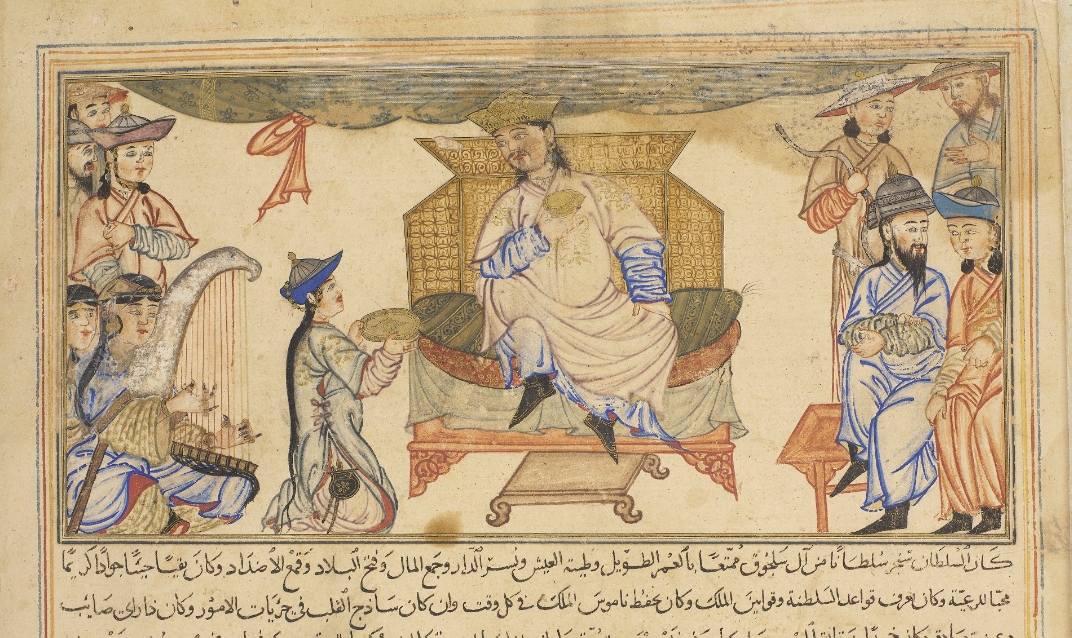 كان السلطان سنجر سلطانا من آل سلجوق ممتعا بالعمر الطويل وطيبة العيش ويسر الدار وجمع المال وفتح البلاد وقمع الأضداد وكان تقيا حييا جوادا كريما
محبا للرعية وكان يعرف قواعد السلطنة وقوانين الملك وكان يحفظ ناموس الملك في كل وقت وان كان ساذج القلب في جزيات الامور وكان ذا راي صايب